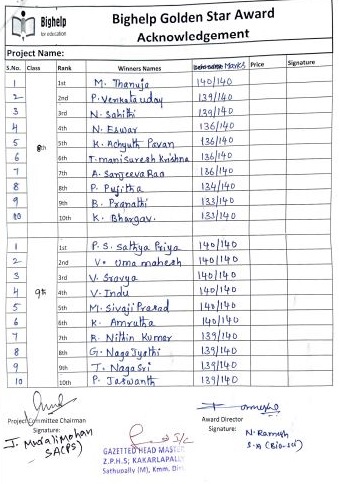 Bighelp
for education
Bighelp Golden Star Award
Acknowledgement
Project Name:
S.No. Class Rank Winners Names Marks Price Signature
1 1st M. Thanuja 140/140
2 2nd P. Venkata uday 139/140
3 3rd N. Sahithi 139/140
4 4th N. Eswar 136/140
5 8th 5th K. Achyuth Pavan 136/140
6 6th T. mani Suresh Krishna 136/140
7 7th A. Sanjeeva Rao 136/140
8 8th P. Pujitha 134/140
9 9th B. Pranathi 133/140
10 10th K. Bhargav. 133/140
1 1st P. S. Sathya Priya 140/140
2 2nd V. Uma mahesh 140/140
3 9th 3rd V. Sravya 140/140
4 4th V. Indu 140/140
5 5th M. Sivaji Prasad 140/140
6 6th K. Amrutha 140/140
7 7th R. Nithin Kumar 139/140
8 8th G. Naga Jyothi 139/140
9 9th T. Naga Sri 139/140
10 10th P. Jaswanth 139/140
Project Committee Chairman
Signature:
J. Muralimohan
SA(PS)
GAZETTED HEAD MASTER
Z.P.H.S; KAKARLAPALLY
Sathupally (M), Kmm. Dist.
Award Director
Signature: N. Ramesh
S.A (Bio-sci)